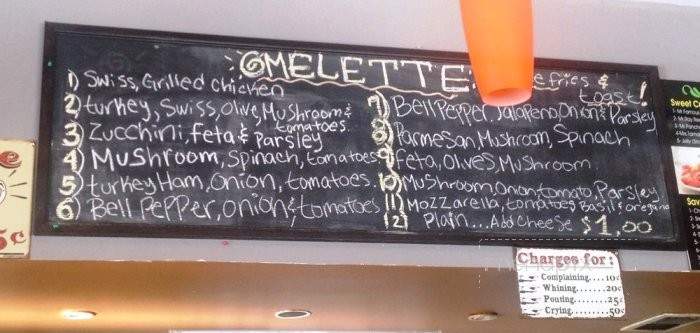 OMELETTE
fries &
toast!
1) Swiss, Grilled chicken
2) turkey, Swiss, Olive, Mushroom &
tomatoes
3) Zucchini, feta & Parsley
4) Mushroom, Spinach, tomatoes
5) turkey Ham, Onion, tomatoes.
6) Bell Pepper, onion & tomatoes
7) Bell Pepper, Jalapeno, Onion & Parsley
8) Parmesan, Mushroom, Spinach
9) feta, Olives, Mushroom
10) Mushroom, Onion, tomato, Parsley
11) Mozzarella, tomatoes, Basil & oregano
12) Plain... Add Cheese $1.00
Charges for:
Complaining....10¢
Whining.......20¢
Pouting........25¢
Crying.........50¢
5¢
Sweet